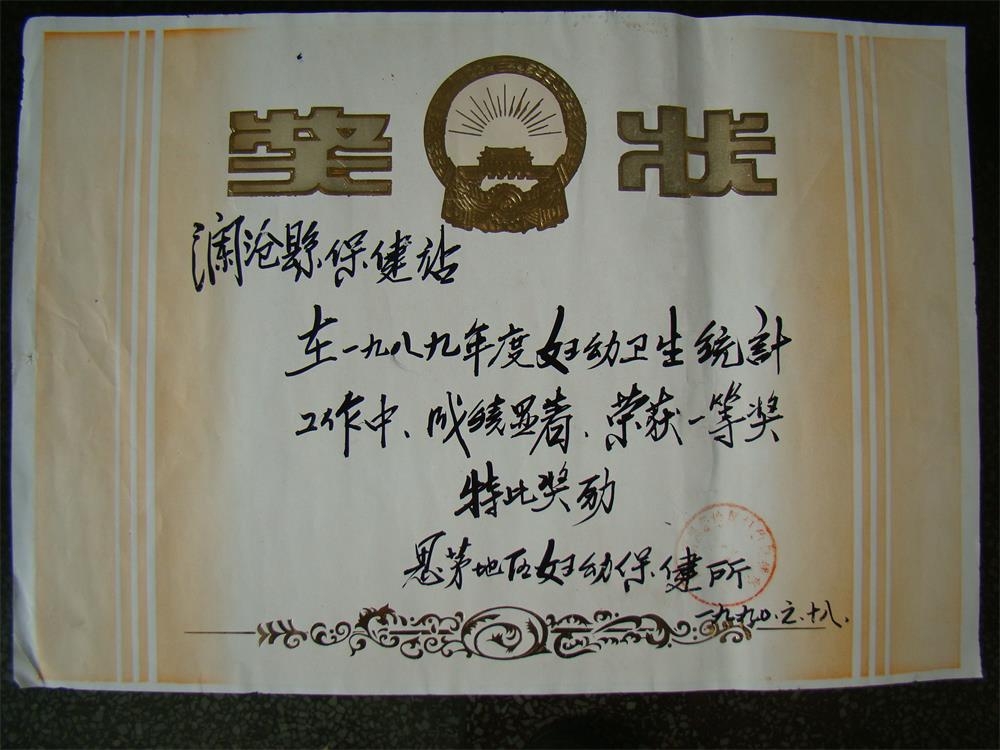 奖状
澜沧縣保健站
在一九八九年度妇幼卫生统計
工作中、成绩显着、荣获一等奖
特此奖励
思茅地区妇幼保健所
一九九〇.六.十八.